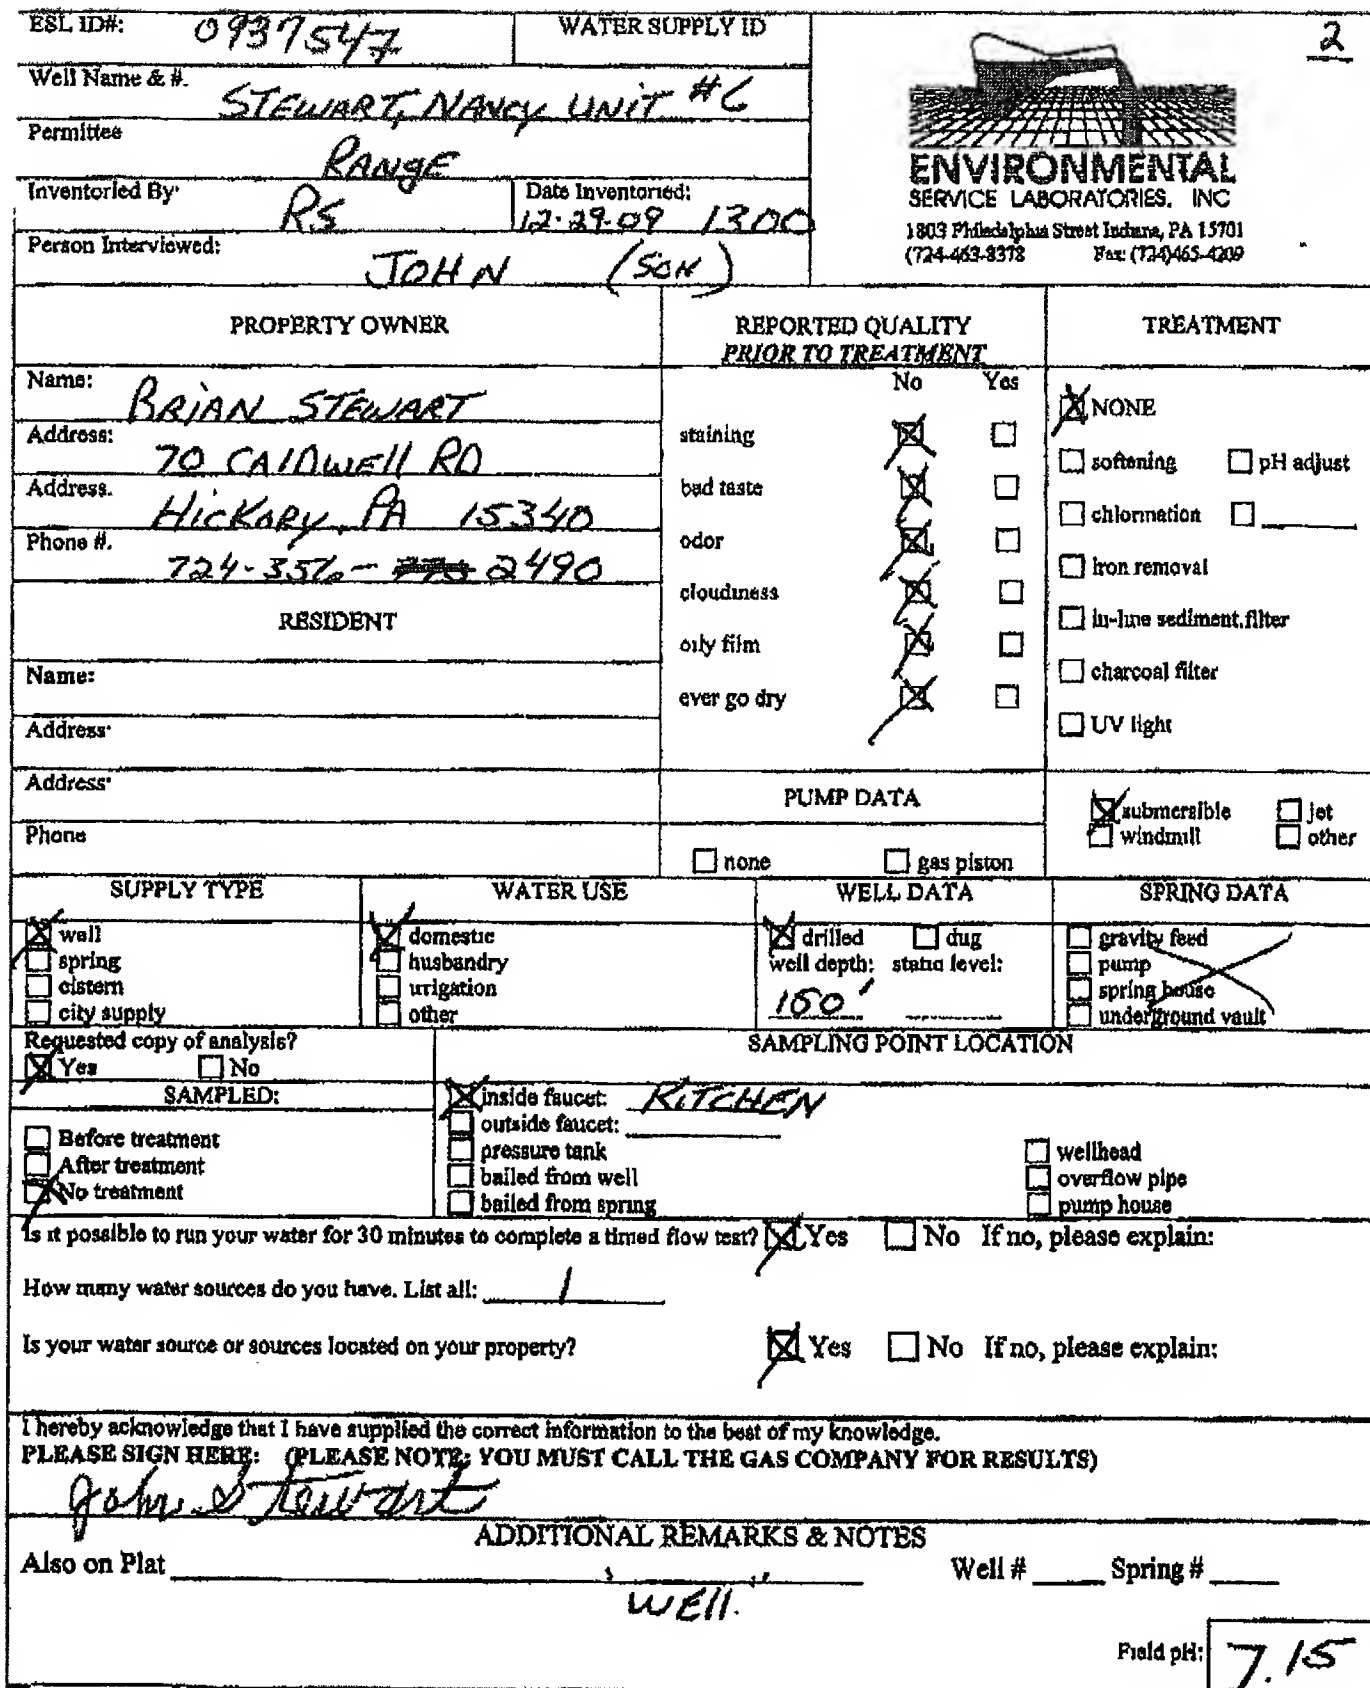 ESL ID#: 0937547 WATER SUPPLY ID
2
Well Name & #. STEWART, NANCY UNIT #6
Permittee RANGE
Inventoried By: RS Date Inventoried: 12-29-09 1300
Person Interviewed: JOHN (SON)
ENVIRONMENTAL
SERVICE LABORATORIES, INC
1803 Philadelphia Street Indiana, PA 15701
(724-463-8378 Fax: (724)465-4209
PROPERTY OWNER
Name: BRIAN STEWART
Address: 70 CALDWELL RD
Address. HICKORY, PA 15340
Phone #. 724-356- 2490
RESIDENT
Name:
Address:
Address:
Phone
REPORTED QUALITY
PRIOR TO TREATMENT
No Yes
staining
bad taste
odor
cloudiness
oily film
ever go dry
TREATMENT
NONE
softening pH adjust
chlorination
iron removal
in-line sediment filter
charcoal filter
UV light
PUMP DATA
none gas piston
submersible jet
windmill other
SUPPLY TYPE
well
spring
cistern
city supply
WATER USE
domestic
husbandry
irrigation
other
WELL DATA
drilled dug
well depth: static level:
150'
SPRING DATA
gravity feed
pump
spring house
underground vault
Requested copy of analysis?
Yes No
SAMPLED:
Before treatment
After treatment
No treatment
SAMPLING POINT LOCATION
inside faucet: KITCHEN
outside faucet:
pressure tank
bailed from well
bailed from spring
wellhead
overflow pipe
pump house
Is it possible to run your water for 30 minutes to complete a timed flow test? Yes No If no, please explain:
How many water sources do you have. List all: 1
Is your water source or sources located on your property? Yes No If no, please explain:
I hereby acknowledge that I have supplied the correct information to the best of my knowledge.
PLEASE SIGN HERE: (PLEASE NOTE: YOU MUST CALL THE GAS COMPANY FOR RESULTS)
John Stewart
ADDITIONAL REMARKS & NOTES
Also on Plat Well # Spring #
WELL.
Field pH: 7.15